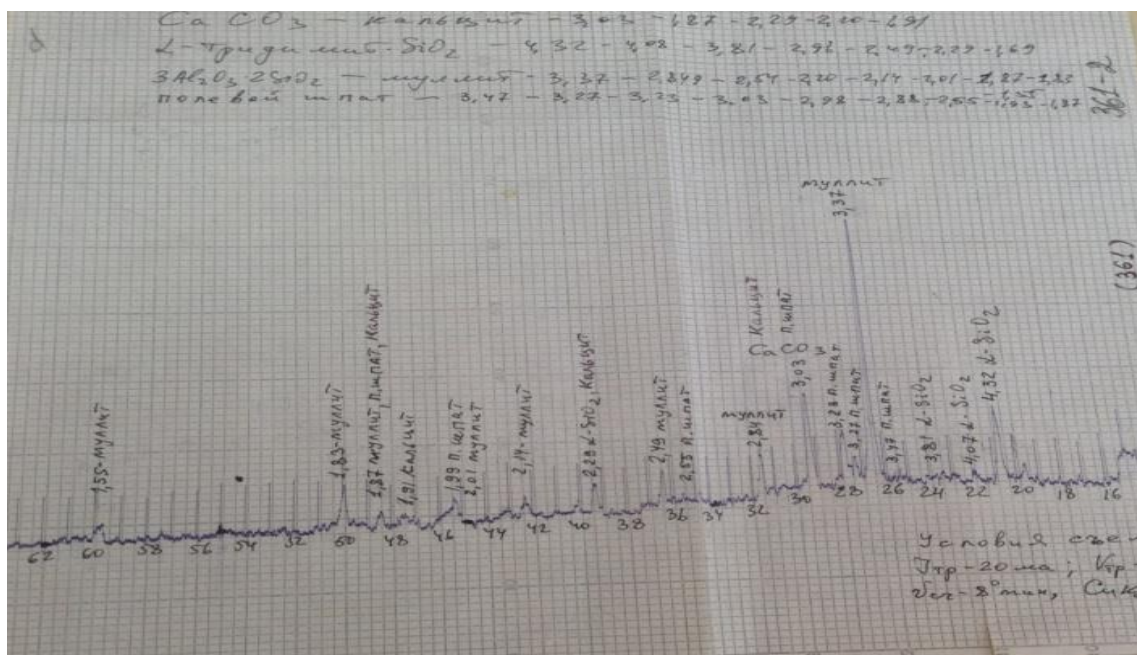 CaCO3 – кальцит – 3,03 – 1,87 – 2,29 – 2,20 – 1,91
α-тридимит-SiO2 – 4,32 – 4,08 – 3,81 – 2,96 – 2,49 – 2,29 – 1,69
3Al2O3 2SiO2 – муллит – 3,37 – 2,849 – 2,54 – 2,20 – 2,14 – 2,01 – 1,87 – 1,83
полевой шпат – 3,47 – 3,27 – 3,23 – 3,03 – 2,98 – 2,88 – 2,55 – 1,93 – 1,87
361-2
(361)
1,55-муллит
1,83-муллит
1,87 муллит, п.шпат, кальцит
1,91 кальцит
1,99 п.шпат
2,01 муллит
2,14-муллит
2,29 α-SiO2, кальцит
2,49 муллит
2,55 п.шпат
муллит
2,84
CaCO кальцит
3,03 и п.шпат
3,23 п.шпат
3,27 п.шпат
муллит
3,37
3,47 п.шпат
3,81 α-SiO2
4,07 α-SiO2
4,32 α-SiO2
62 60 58 56 54 52 50 48 46 44 42 40 38 36 34 32 30 28 26 24 22 20 18 16
Условия съе
Jтр-20 ма; Vтр-
Vсч-8°мин, CuK